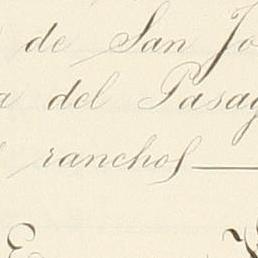 de San Jo
a del Pasag
ranchos
E